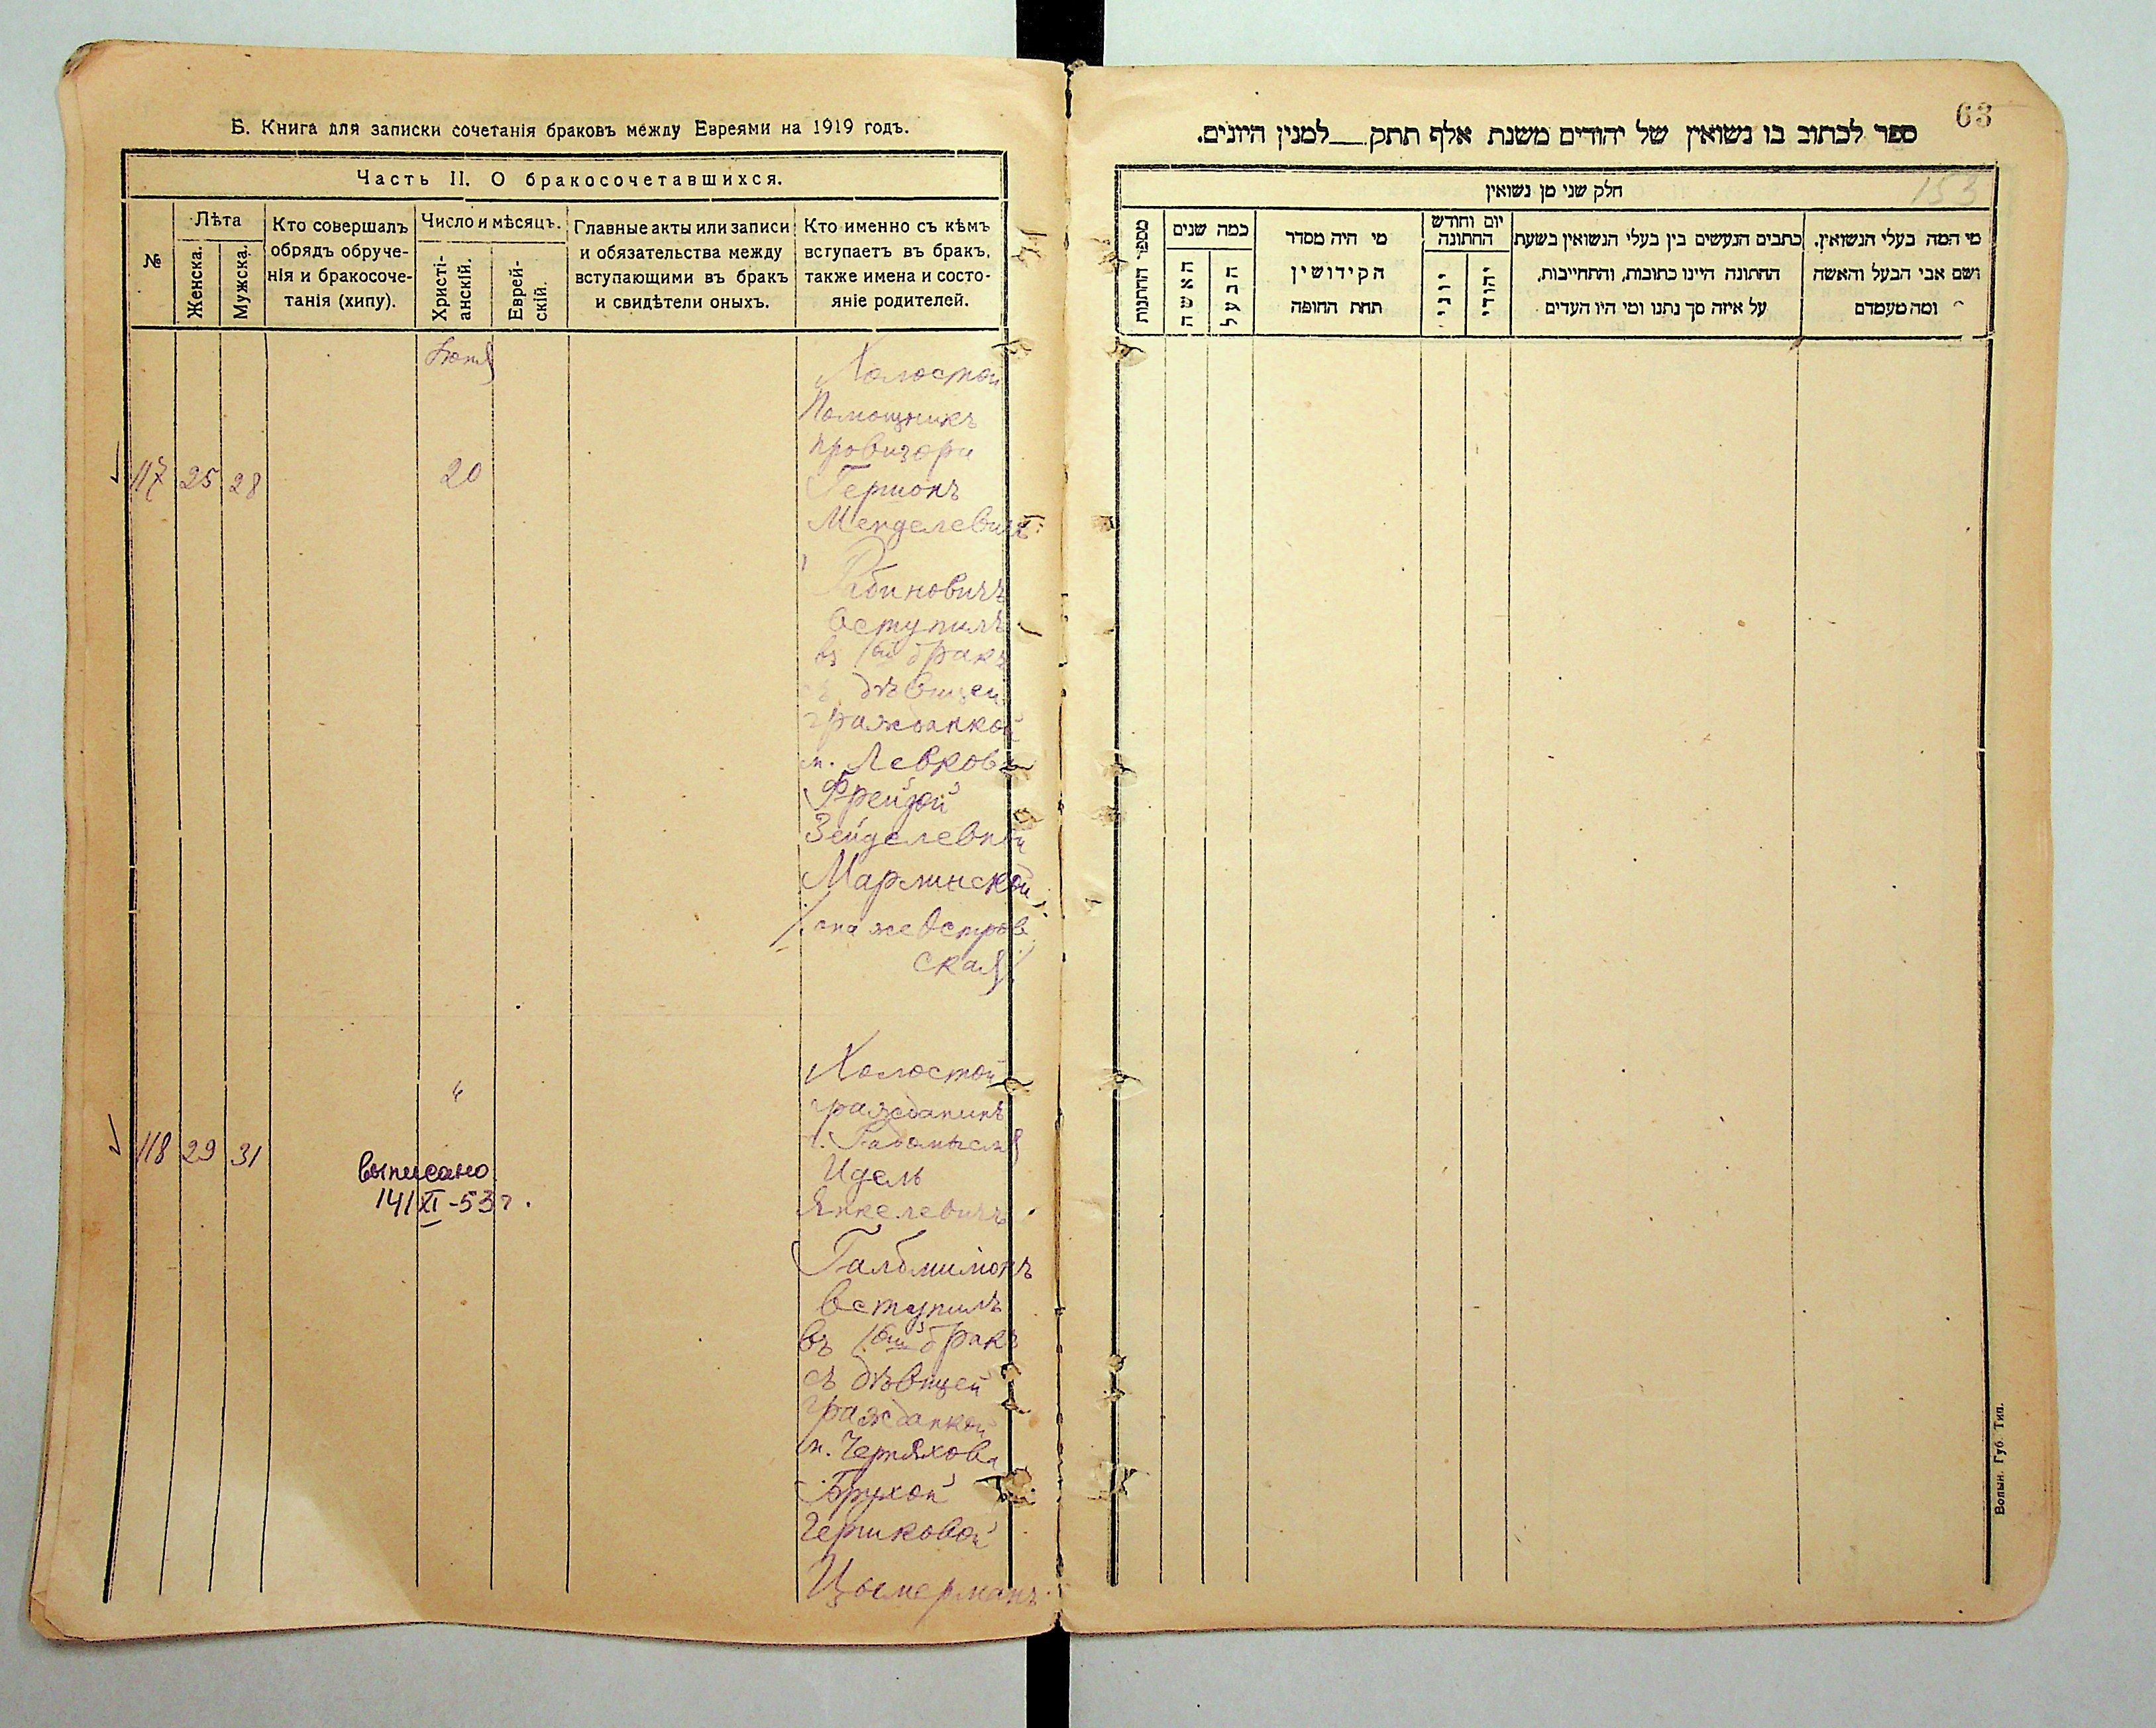 Б. Книга для записки сочетанія браковъ между Евреями на 1919 годъ.
Часть II. О бракосочетавшихся.
№
Лѣта
Женска.
Мужска.
Кто совершалъ
обрядъ обруче-
нія и бракосоче-
танія (хипу).
Число и мѣсяцъ.
Христі-
анскій.
Еврей-
скій.
Главные акты или записи
и обязательства между
вступающими въ бракъ
и свидѣтели оныхъ.
Кто именно съ кѣмъ
вступаетъ въ бракъ,
также имена и состо-
яніе родителей.
117 25 28
20
Холостой
Помощникъ
провизора
Гершонъ
Менделевичъ
Рабиновичъ
вступилъ
въ 1ый бракъ
съ дѣвицей
гражданкой
м. Левкова
Фрейдой
Зейделевной
Марлинской
/она же Островс
ская/
118 29 31
"
выписано
14/XI-53г.
Холостой
гражданинъ
г. Радомысля
Идель
Янкелевичъ
вступилъ
въ 1ый бракъ
съ дѣвицей
гражданкой
м. Черняхова
Брухой
Гершковой
Цымерманъ
63
153
ספר לכתוב בו נשואין של יהודים משנת אלף תתק__למנין היונים.
חלק שני מן נשואין
מספר החתונות
כמה שנים
האשה
הבעל
מי היה מסדר
הקידושין
תחת החופה
יום וחודש
החתונה
יוני
יהודי
כתבים הנעשים בין בעלי הנשואין בשעת
החתונה היינו כתובות, והתחייבות,
על איזה סך נתנו ומי היו העדים
מי המה בעלי הנשואין,
ושם אבי הבעל והאשה
ומה מעמדם
Волын. Губ. Тип.